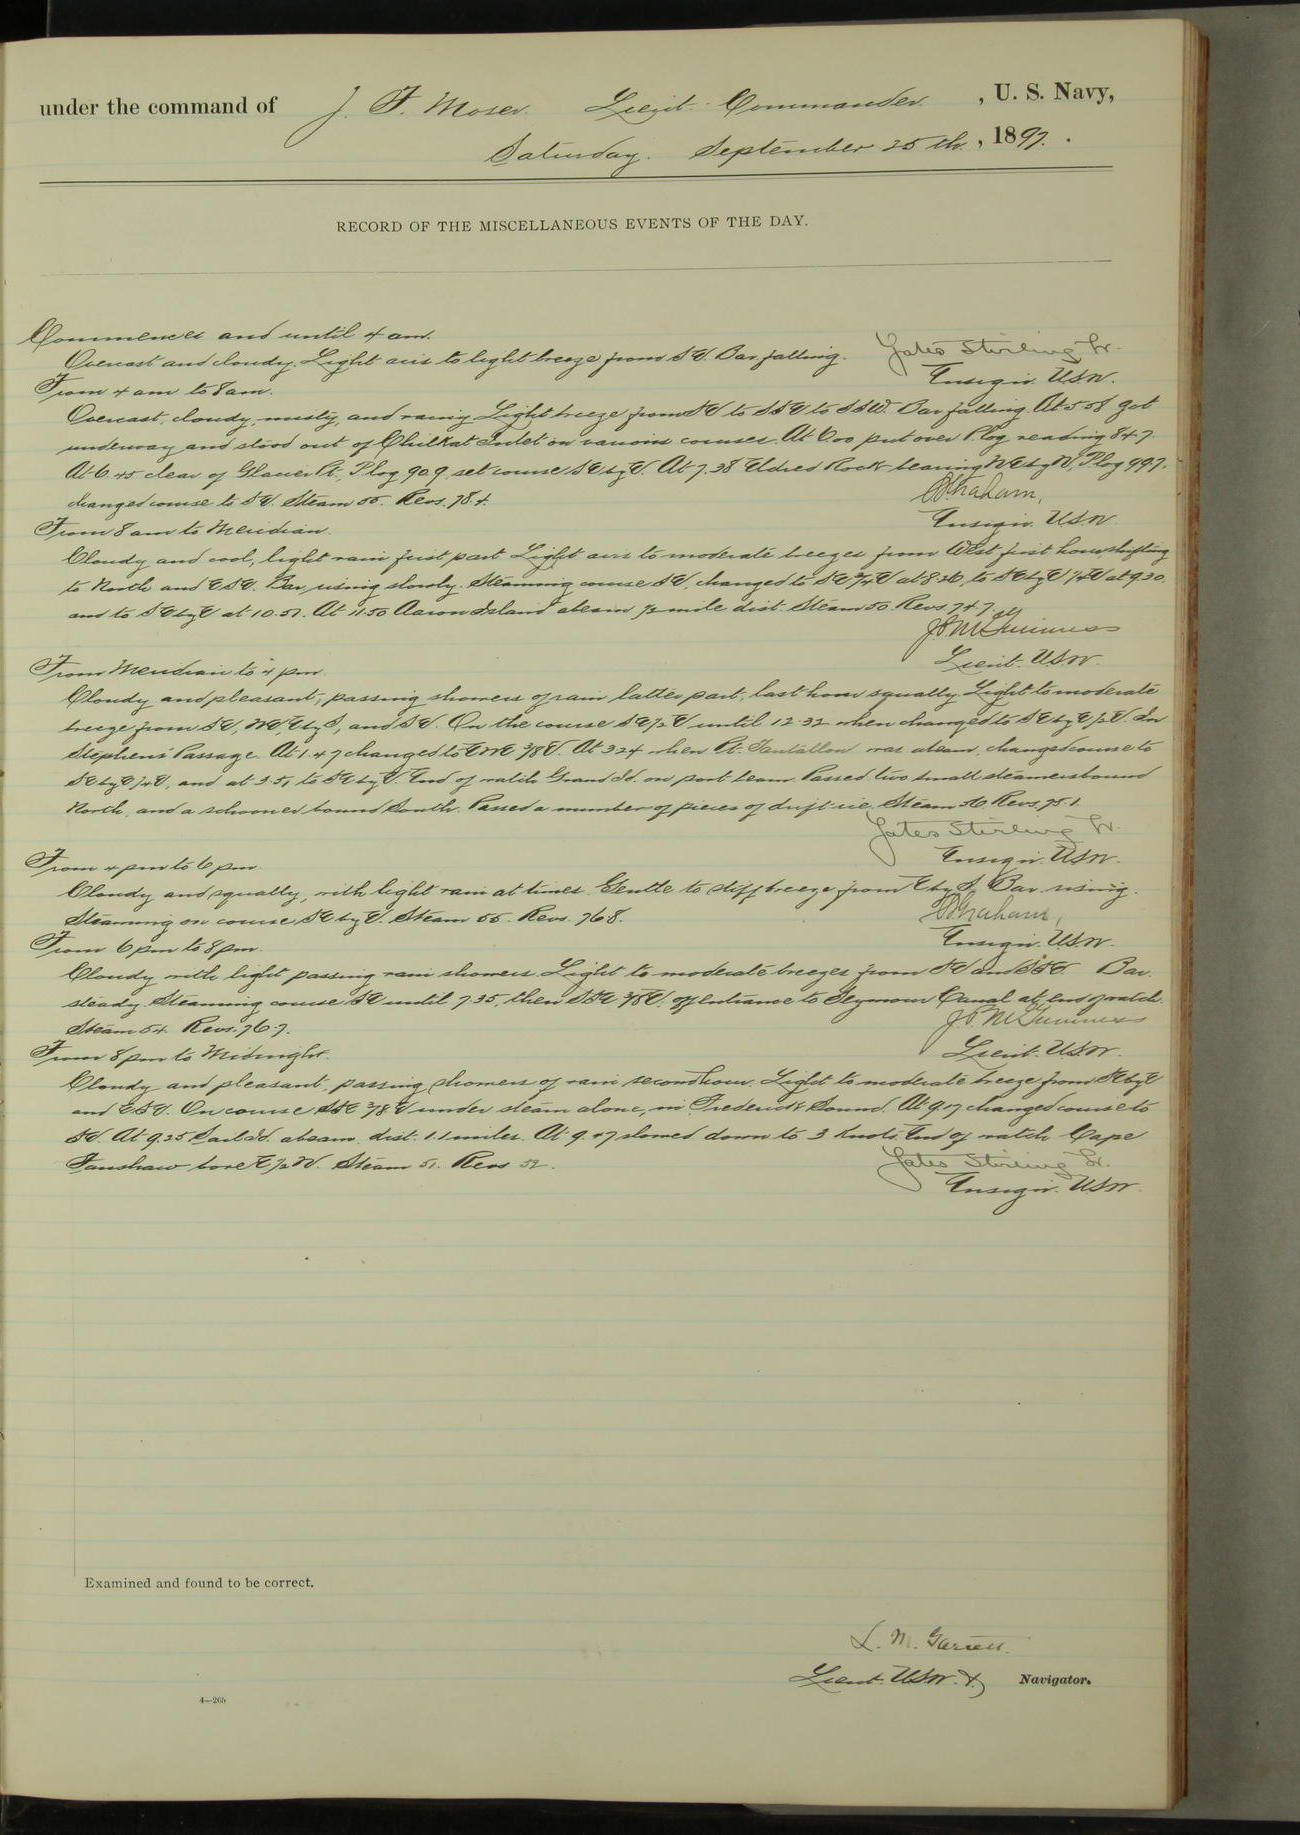 under the command of J. F. Moser Lieut. Commander, U. S. Navy,
Saturday. September 25th, 1897.
RECORD OF THE MISCELLANEOUS EVENTS OF THE DAY.
Commences and until 4 am.
Overcast and cloudy. Light airs to light breeze from SE. Bar falling.
Yates Stirling Jr.
Ensign USN.
From 4 am to 8 am.
Overcast, cloudy, misty, and rainy. Light breeze from SE to SSE to SSW. Bar falling. At 5.58 got
underway and stood out of Chilkat Inlet on various courses. At 6.00 put over P log reading 84.7.
At 6.45 clear of Glacier Pt., P. log 90.9 set course SE by E. At 7.38 Eldred Rock bearing W by N, P. log 99.7.
changed course to SE. Steam 55. Revs. 78.4.
Graham,
Ensign USN
From 8 am to Meridian.
Cloudy and cool, light rain first part. Light airs to moderate breezes from West first hour shifting
to North and ESE. Bar, rising slowly. Steaming course SE, changed to SE 3/4 E at 8.26, to SE by E 1/4 E at 9.30.
and to SE by E at 10.57. At 11.50 Aaron Island abeam 1/2 mile dist. Steam 50. Revs. 74.7.
J P McGuinness
Lieut. USN.
From Meridian to 4 pm.
Cloudy and pleasant; passing showers of rain latter part; last hour squally. Light to moderate
breeze from SE, and SE. On the course SE 1/2 E until 12.32 when changed to SE by E 1/2 E. In
Stephens Passage. At 1.47 changed to 3/8 E. At 3.24 when Pt. Tantallon was abeam, changed course to
SE by E 1/4 E, and at 3.51 to SE by E. End of watch Grand Id. on port beam. Passed two small steamers bound
North, and a schooner bound South. Passed a number of pieces of drift ice. Steam 56. Revs. 75.1.
Yates Stirling Jr.
Ensign USN.
From 4 pm to 6 pm
Cloudy and squally, with light rain at times. Gentle to stiff breeze from E by S. Bar. rising.
Steaming on course SE by E. Steam 55. Revs. 76.8.
Graham,
Ensign. USN.
From 6 pm to 8 pm.
Cloudy with light passing rain showers. Light to moderate breezes from SE and SSE. Bar.
steady. Steaming course SE until 7.35, then SSE 3/8 E. off entrance to Seymour Canal at end of watch.
Steam 54. Revs. 76.7.
J P McGuinness
Lieut. USN.
From 8 pm to Midnight.
Cloudy and pleasant, passing showers of rain second hour. Light to moderate breeze from SE by E
and ESE. On course SSE 3/8 E under steam alone, in Frederick Sound. At 9.17 changed course to
SE. At 9.25 Sail Id. abeam, dist. 1.1 miles. At 9.47 slowed down to 3 knots. End of watch Cape
Fanshaw bore E 1/2 N. Steam 51. Revs 52.
Yates Stirling Jr.
Ensign. USN.
Examined and found to be correct.
L. M. Garrett.
Lieut. USN. & Navigator.
4—265